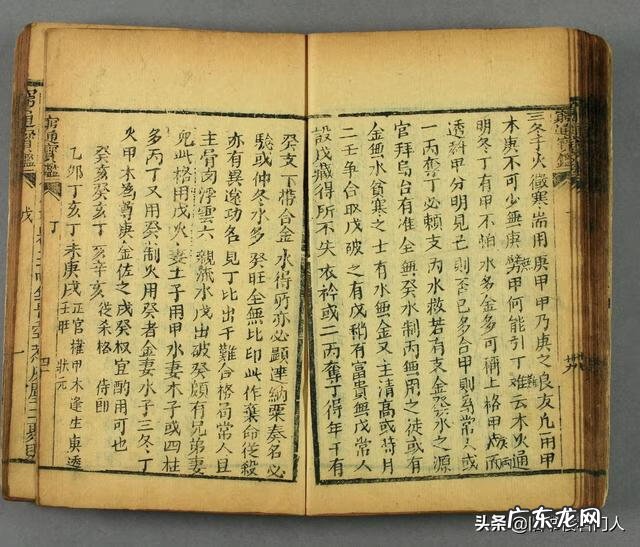 窮通寶鑑
三冬丁火微寒耑用庚甲甲乃庚之良友凡用甲
木庚不可少無庚劈甲何能引丁難云木火通
明冬丁有甲不怕水多金多可稱上格甲庚兩
透科甲分明見己則否己多合甲則為常人或
一丙奪丁必賴支內水救若有支金發水之源
官拜烏台有准全無癸水制丙無用之徒或有
金無水貧寒之士有水無金又主清高或時月
二壬爭合取戊破之有戊稍有富貴無戊常人
設戊藏得所不失衣衿或二丙奪丁得年干有
癸支下帶合金水得所亦必顯達納粟奏名必
驗或仲冬水多癸旺全無比印此作棄命從殺
亦有異途功名見丁比出干難合格苟常人且
主骨肉浮雲六親流水戊出破癸頗有兄弟妻
兒此格用戊火妻土子用甲水妻木子或四柱
多丙丁又用癸制火用癸者金妻水子三冬丁
火甲木為尊庚金佐之戊癸权宜酌用可也
癸亥癸亥丁 亥辛亥 從杀格 侍郎
乙卯丁亥丁未庚戌 正官 甲木逢生庚透 壬甲 狀元
窮通寶鑑
丁
窮通寶鑑
戊
头条
广东龙网